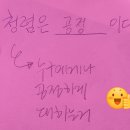 청렴은 공정 이다
누구에게나
공정하게
대하는것